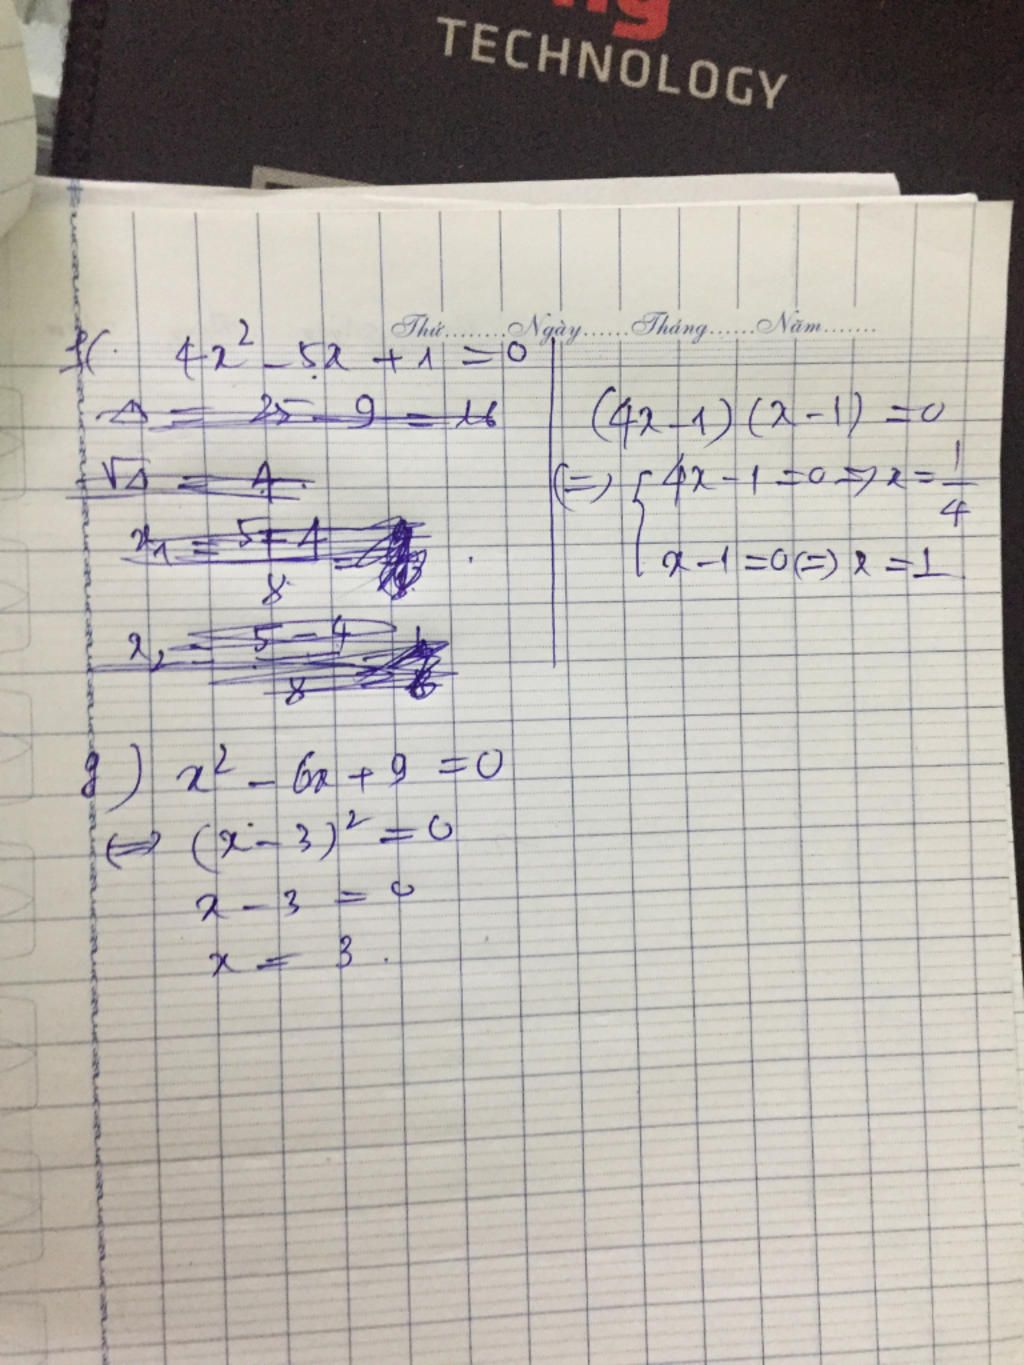 ng
TECHNOLOGY
Thứ........Ngày......Tháng......Năm.......
f(. 4x² - 5x + 1 = 0
Δ = 25 - 9 = 16
√Δ = 4
x₁ = 5+4 / 8 =
x₂ = 5-4 / 8
(4x-1)(x-1) = 0
(=) { 4x - 1 = 0 => x = 1/4
x - 1 = 0 (=) x = 1
g) x² - 6x + 9 = 0
<=> (x - 3)² = 0
x - 3 = 0
x = 3.